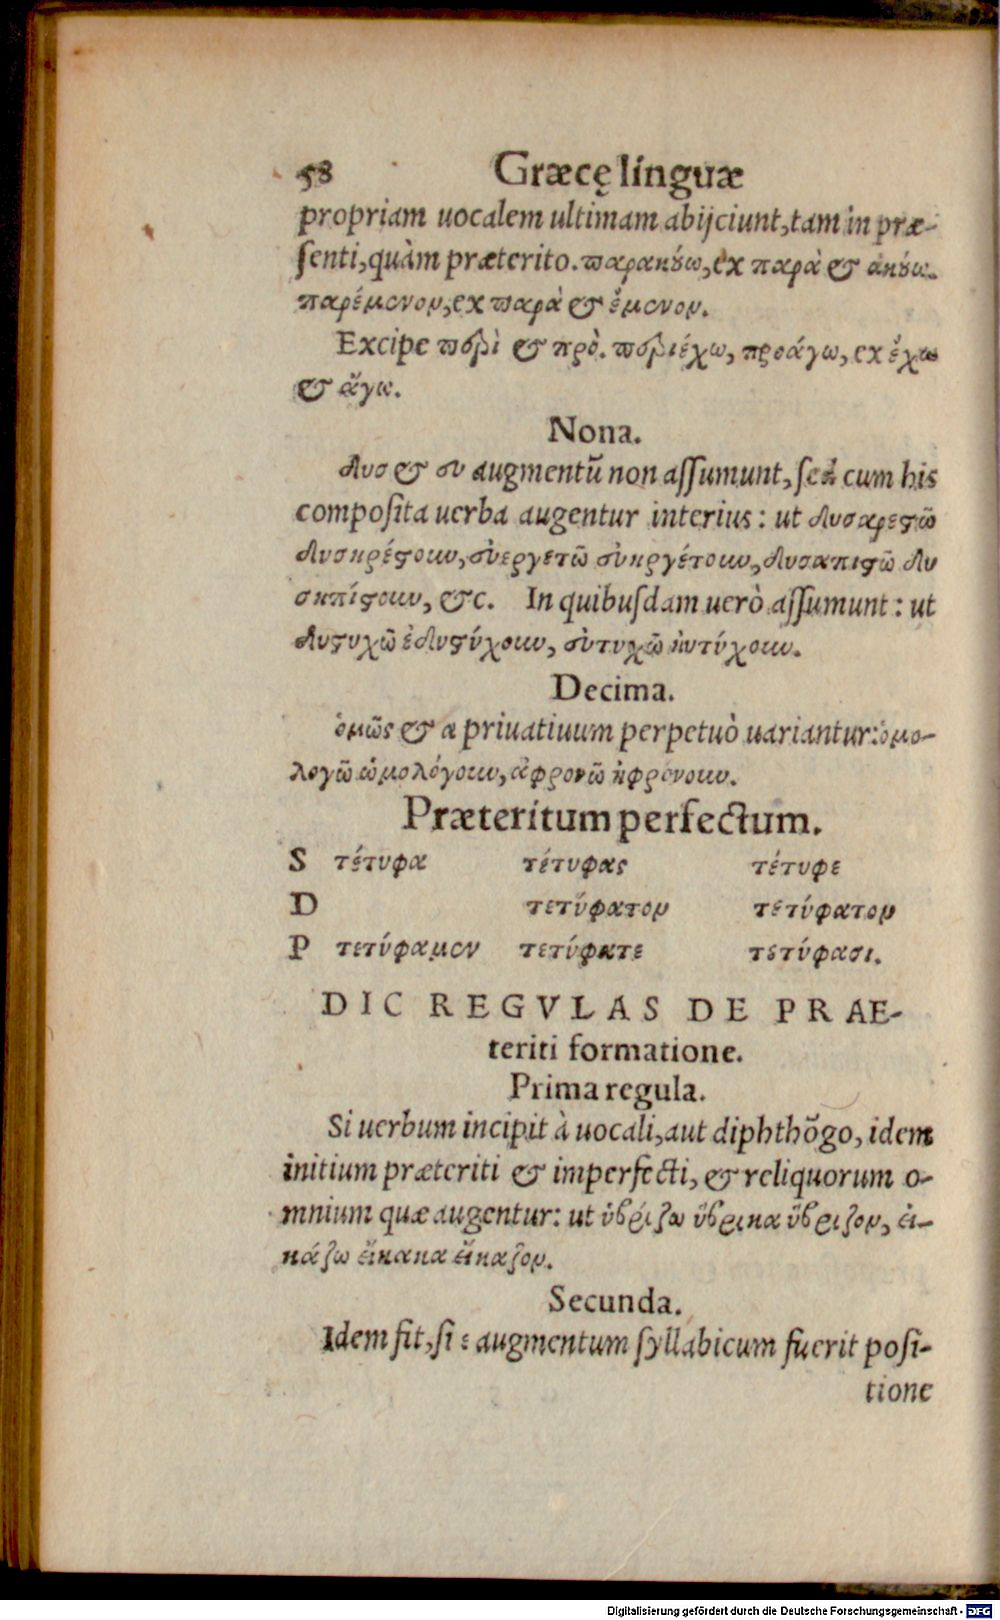 58 Græcę linguæ
propriam uocalem ultimam abijciunt, tam in præ-
ſenti, quàm præterito. παρακούω, ex παρὰ & ἀκούω.
παρέμενον, ex παρὰ & ἔμενον.
Excipe περὶ & πρὸ. περιέχω, προάγω, ex ἔχω
& ἄγω.
Nona.
δυσ & ευ augmentū non aſſumunt, ſed cum his
compoſita uerba augentur interius: ut δυσαρεστῶ
δυσηρέστουν, εὐεργετῶ εὐηργέτουν, δυσαπιστῶ δυ
σηπίστουν, &c. In quibuſdam uerò aſſumunt: ut
δυστυχῶ ἐδυστύχουν, εὐτυχῶ ηὐτύχουν.
Decima.
ὁμῶς & α priuatiuum perpetuò uariantur: ὁμο-
λογῶ ὡμολόγουν, ἀφρονῶ ἠφρόνουν.
Præteritum perfectum.
S τέτυφα τέτυφας τέτυφε
D τετύφατον τετύφατον
P τετύφαμεν τετύφατε τετύφασι.
DIC REGVLAS DE PRAE-
teriti formatione.
Prima regula.
Si uerbum incipit à uocali, aut diphthōgo, idem
initium præteriti & imperfecti, & reliquorum o-
mnium quæ augentur: ut ὑβρίζω ὕβρικα ὕβριζον, εἰ-
κάζω εἴκακα εἴκαζον.
Secunda.
Idem fit, ſi ε augmentum ſyllabicum fuerit poſi-
tione
Digitalisierung gefördert durch die Deutsche Forschungsgemeinschaft - DFG